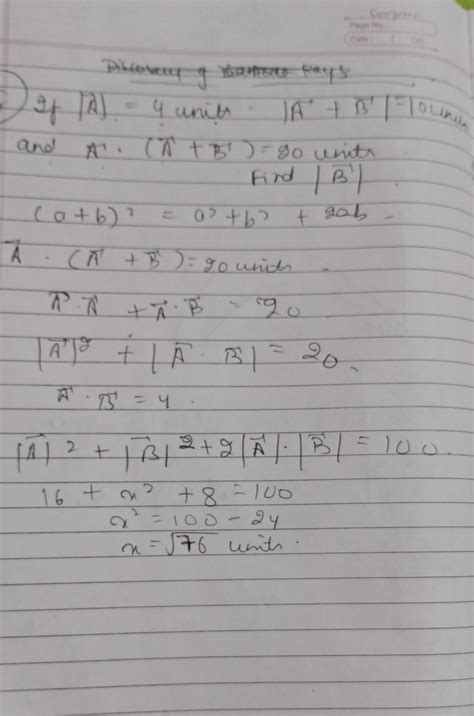 Page No.
Date
Discovery of Rays
If |A⃗| = 4 units . |A⃗ + B⃗| = 10 units
and A⃗ . (A⃗ + B⃗) = 20 units
Find |B⃗|
(a + b)² = a² + b² + 2ab -
A⃗ . (A⃗ + B⃗) = 20 units -
A⃗ . A⃗ + A⃗ . B⃗ = 20
|A⃗|² + |A⃗ . B⃗| = 20 .
A⃗ . B⃗ = 4 .
|A⃗|² + |B⃗|² + 2|A⃗| . |B⃗| = 100 .
16 + x² + 8 = 100
x² = 100 - 24
x = √76 units .